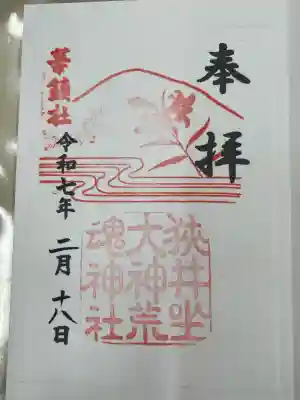 奉拝
狭井坐
大神荒
魂神社
華鎮社
令和七年
二月十八日